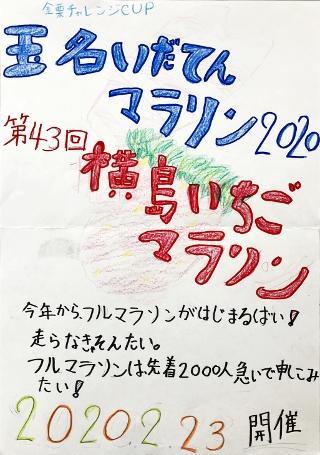 金栗チャレンジCUP
玉名いだてん
マラソン2020
第43回
横島いちご
マラソン
今年からフルマラソンがはじまるばい!
走らなきゃそんたい。
フルマラソンは先着2000人急いで申しこみ
たい!
2020.2.23 開催